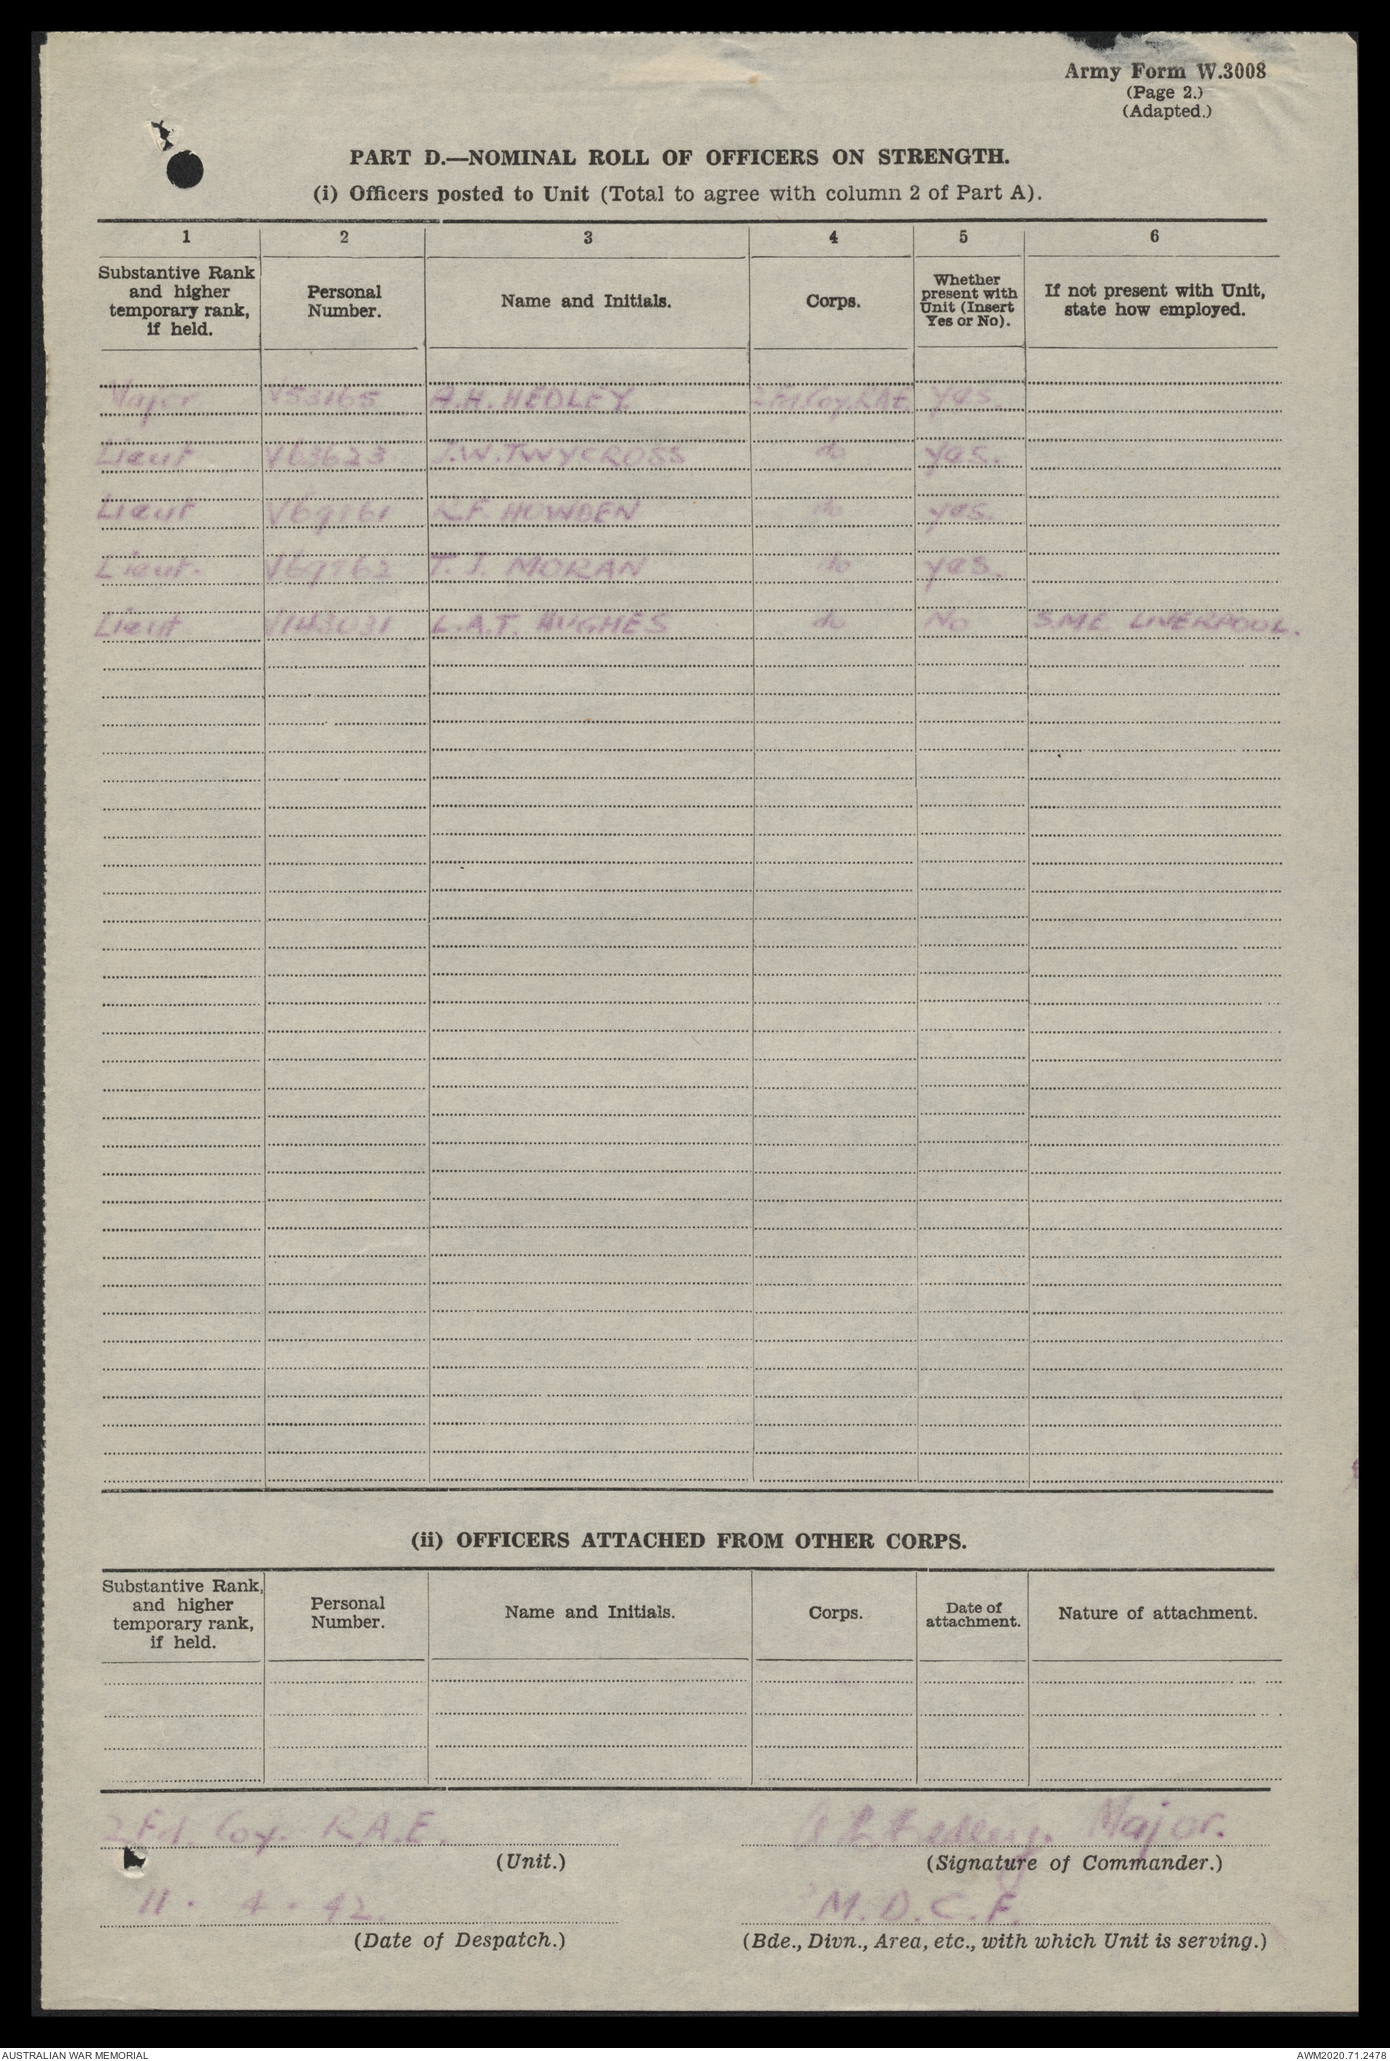 Army Form W.3008
(Page 2.)
(Adapted.)
PART D.—NOMINAL ROLL OF OFFICERS ON STRENGTH.
(i) Officers posted to Unit (Total to agree with column 2 of Part A).
1 2 3 4 5 6
Substantive Rank and higher temporary rank, if held. Personal Number. Name and Initials. Corps. Whether present with Unit (Insert Yes or No). If not present with Unit, state how employed.
Major V53165 A.H. HEDLEY. 2 Fd. Coy. R.A.E. Yes.
Lieut V63623 J.W. TWYCROSS do Yes.
Lieut R.F. HOWDEN do Yes.
Lieut. T. J. MORAN do Yes.
Lieut V143031 L.A.T. HUGHES do No S.M.E. LIVERPOOL.
(ii) OFFICERS ATTACHED FROM OTHER CORPS.
Substantive Rank, and higher temporary rank, if held. Personal Number. Name and Initials. Corps. Date of attachment. Nature of attachment.
2 Fd. Coy. R.A.E. A H Hedley. Major.
(Unit.) (Signature of Commander.)
11 . 4 . 42. M. D. C. F.
(Date of Despatch.) (Bde., Divn., Area, etc., with which Unit is serving.)
AUSTRALIAN WAR MEMORIAL AWM2020.71.2478